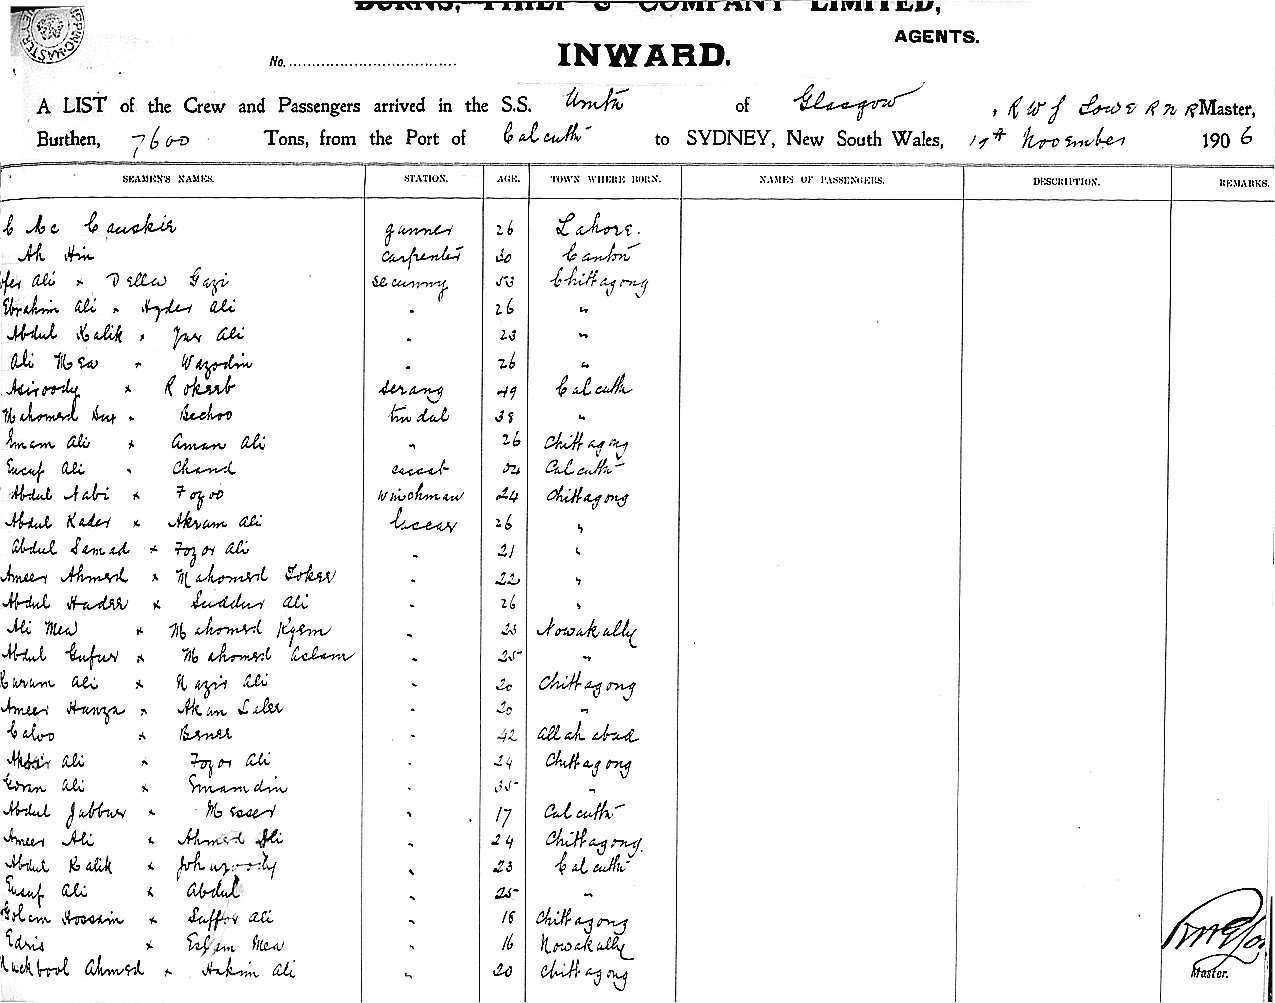 BURNS, PHILP & COMPANY LIMITED,
AGENTS.
INWARD.
No.
A LIST of the Crew and Passengers arrived in the S.S. Umta of Glasgow , R W J Lowe R N R Master,
Burthen, 7600 Tons, from the Port of Calcutta to SYDNEY, New South Wales, 17th November 1906
SEAMEN'S NAMES. STATION. AGE. TOWN WHERE BORN. NAMES OF PASSENGERS. DESCRIPTION. REMARKS.
C Mc gunner 26 Lahore.
Ah Hin carpenter 30 Canton
Ali x Della Gazi secunny 53 Chittagong
Ebrahim Ali " Hyder Ali " 26 "
Abdul Kalik " Ali " 23 "
Ali Mea " Wazodin " 26 "
x serang 49 Calcutta
Mahomed " Bechoo tindal 38 "
Emam Ali x Aman Ali " 26 Chittagong
Eusuf Ali " Chand Calcutta
Abdul Nabi x Fozoo winchman 24 Chittagong
Abdul Kader x Akram Ali lascar 26 "
Abdul Samad x Fozor Ali " 21 "
Ameer Ahmed x Mahomed " 22 "
Abdul x Suddur Ali " 26 "
Ali Mea x Mahomed " Nowakally
Abdul Gufur x Mahomed Aslam " 25 "
Karam Ali x Nazir Ali " 20 Chittagong
Ameer Hamza " " 20 "
Caloo x " 42 Allahabad
Ali x Fozor Ali " 24 Chittagong
Ali x Emamdin " 35 "
Abdul Jubbar x " 17 Calcutta
Ameer Ali x Ahmed Ali " 24 Chittagong.
Abdul Kalik x " 23 Calcutta
Eusuf Ali x Abdul " 25 "
Golam Hossein x Saffor Ali " 18 Chittagong
Edris x Mea " 16 Nowakally
Muckbool Ahmed x Hakim Ali " 20 Chittagong
Master.